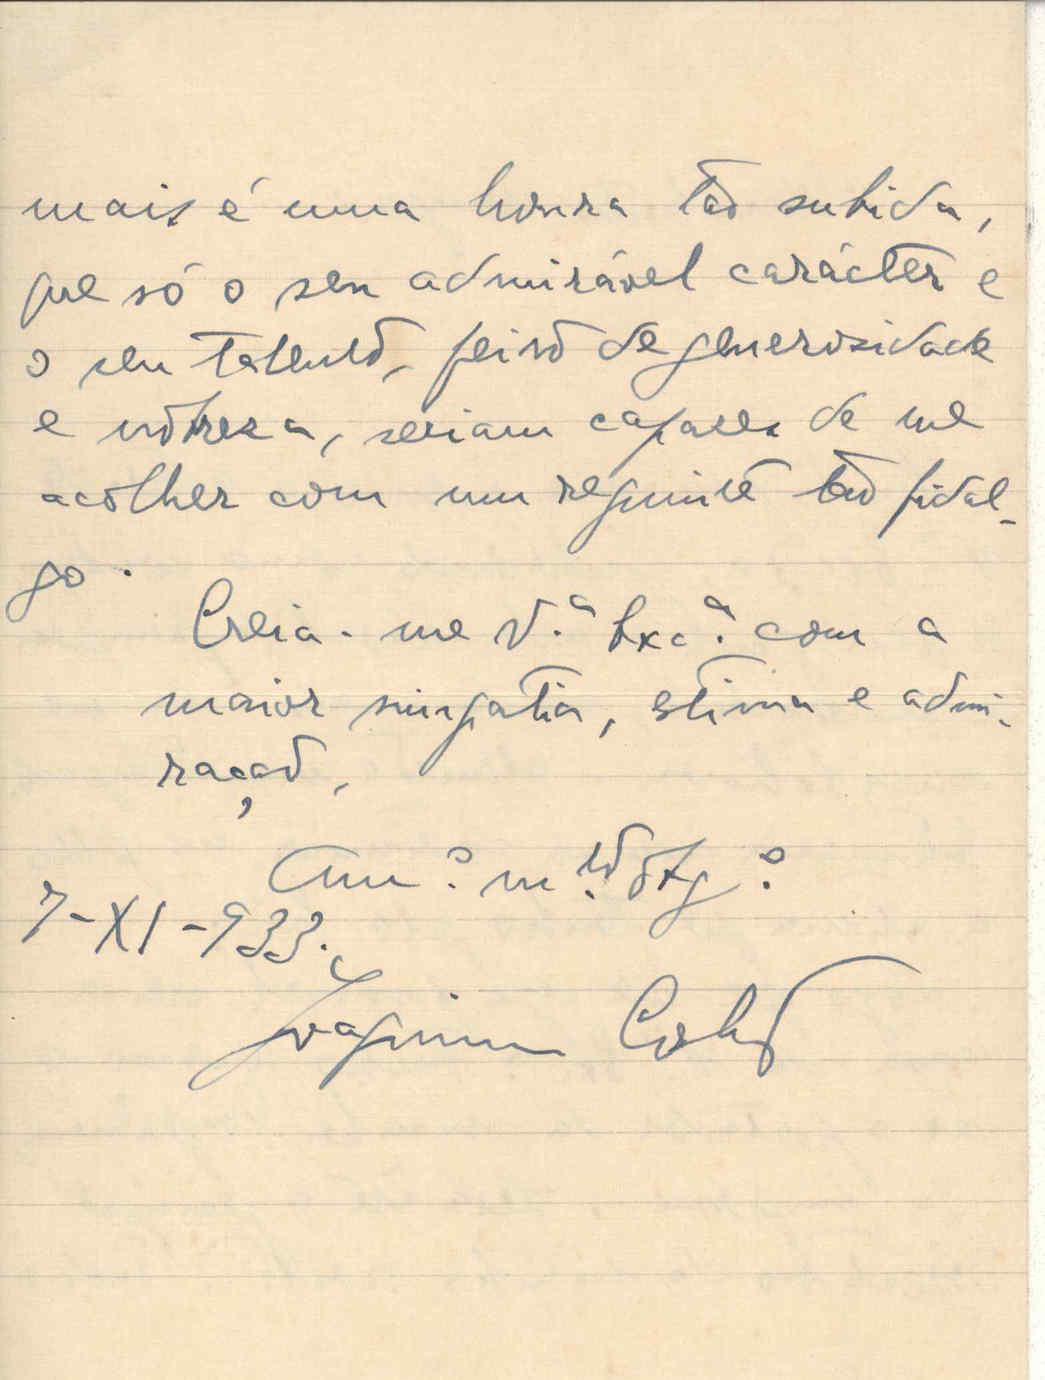 mais é uma honra tão subida,
que só o seu admirável carácter e
o seu talento, feito de generosidade
e nobreza, seriam capazes de me
acolher com um requinte tão fidal-
go.
Creia-me V.ª Exc.ª com a
maior simpatia, estima e admi-
ração,
Am.º m.to obg.º
7-XI-933.
Joaquim